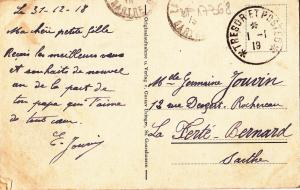 Le 31-12-18
Ma chère petite fille
Reçois les meilleurs vœux
et souhaits de nouvel
an de la part de
ton papa qui t'aime
de tout cœur.
E. Jouvin
TRESOR ET POSTES
1 - 1
19
Mlle Germaine Jouvin
12 rue Denfert-Rochereau
La Ferté-Bernard
Sarthe